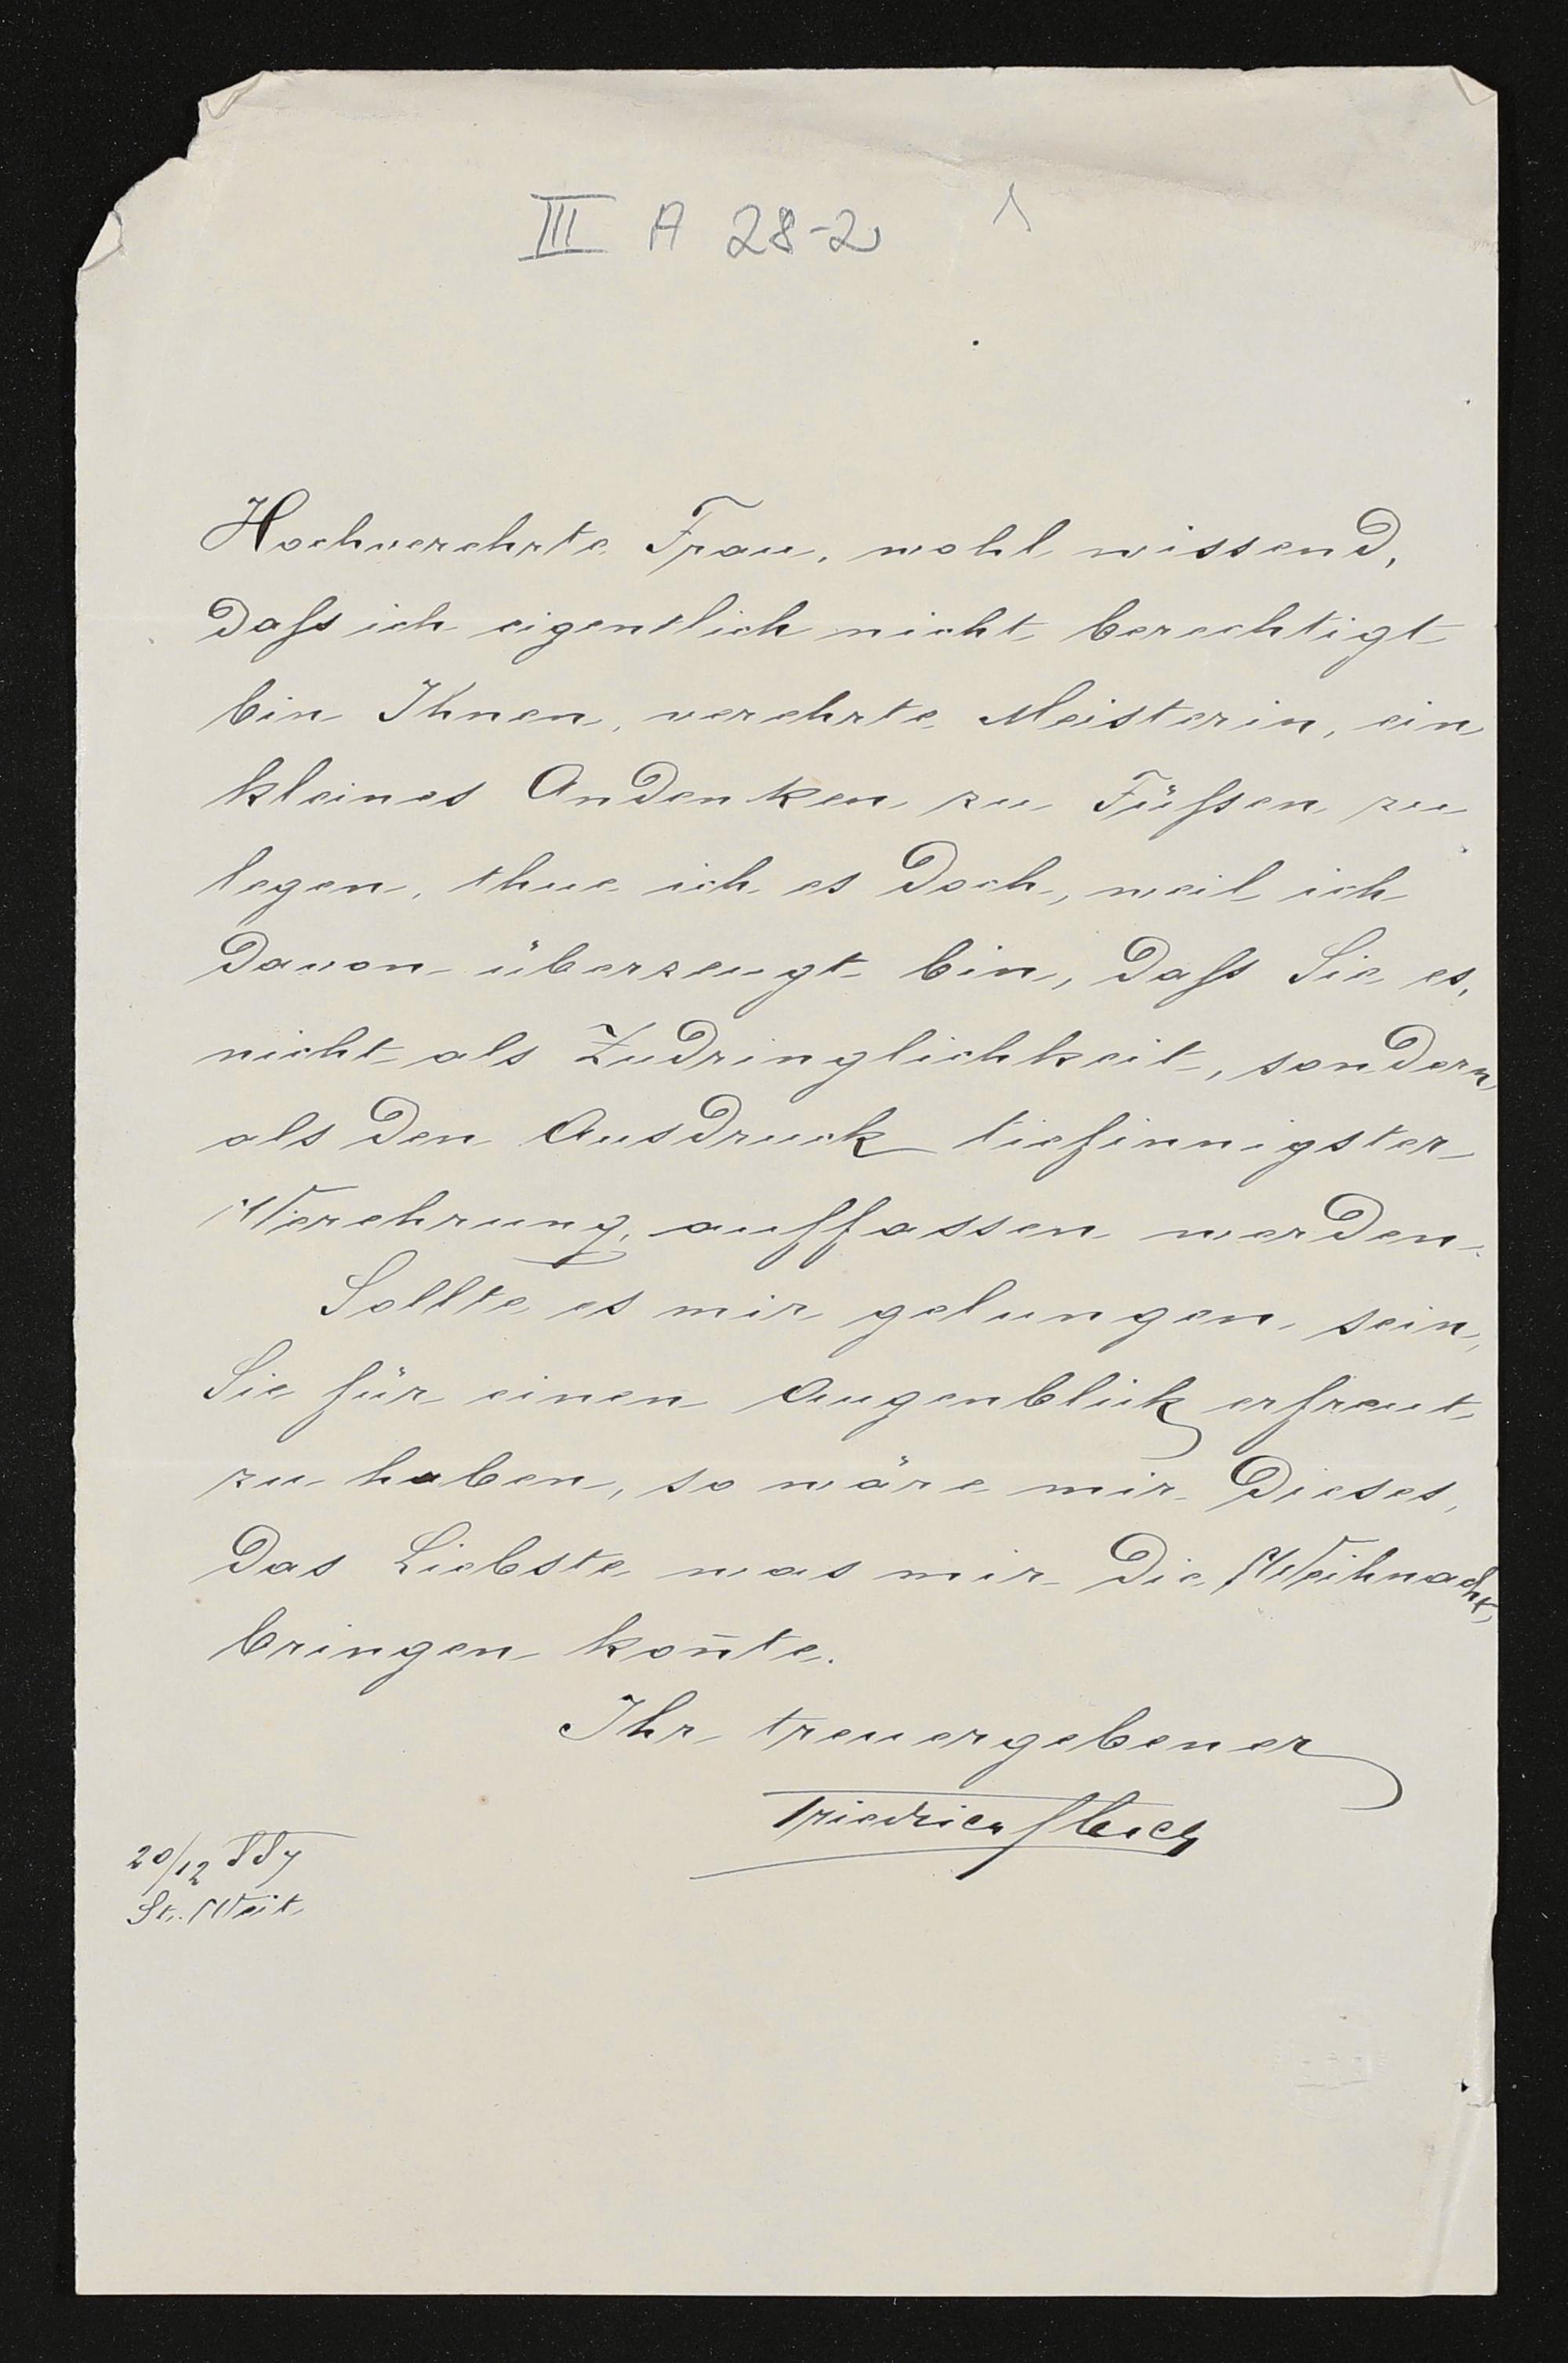 III A 28-2 1
Hochverehrte Frau, wohl wissend,
daſs ich eigentlich nicht berechtigt
bin Ihnen, verehrte Meisterin, ein
kleines Andenken zu Füſsen zu
legen, thue ich es doch, weil ich
davon überzeugt bin, daſs Sie es,
nicht als Zudringlichkeit, sondern
als den Ausdruck tiefinnigster
Verehrung, auffassen werden.
Sollte es mir gelungen sein,
Sie für einen Augenblick erfreut
zu haben, so wäre mir dieses,
das Liebste was mir die Weihnacht,
bringen kon̄te.
Ihr treuergebener
Friedrich
20/12
St. Veit